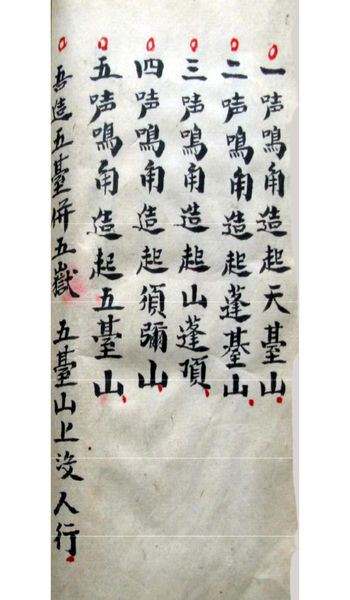 一啼鳴角造起天基山
二啼鳴角造起蓬基山
三啼鳴角造起山蓬頂
四啼鳴角造起須彌山
五啼鳴角造起五臺山
吾造五臺併五嶽 五臺山上沒人行